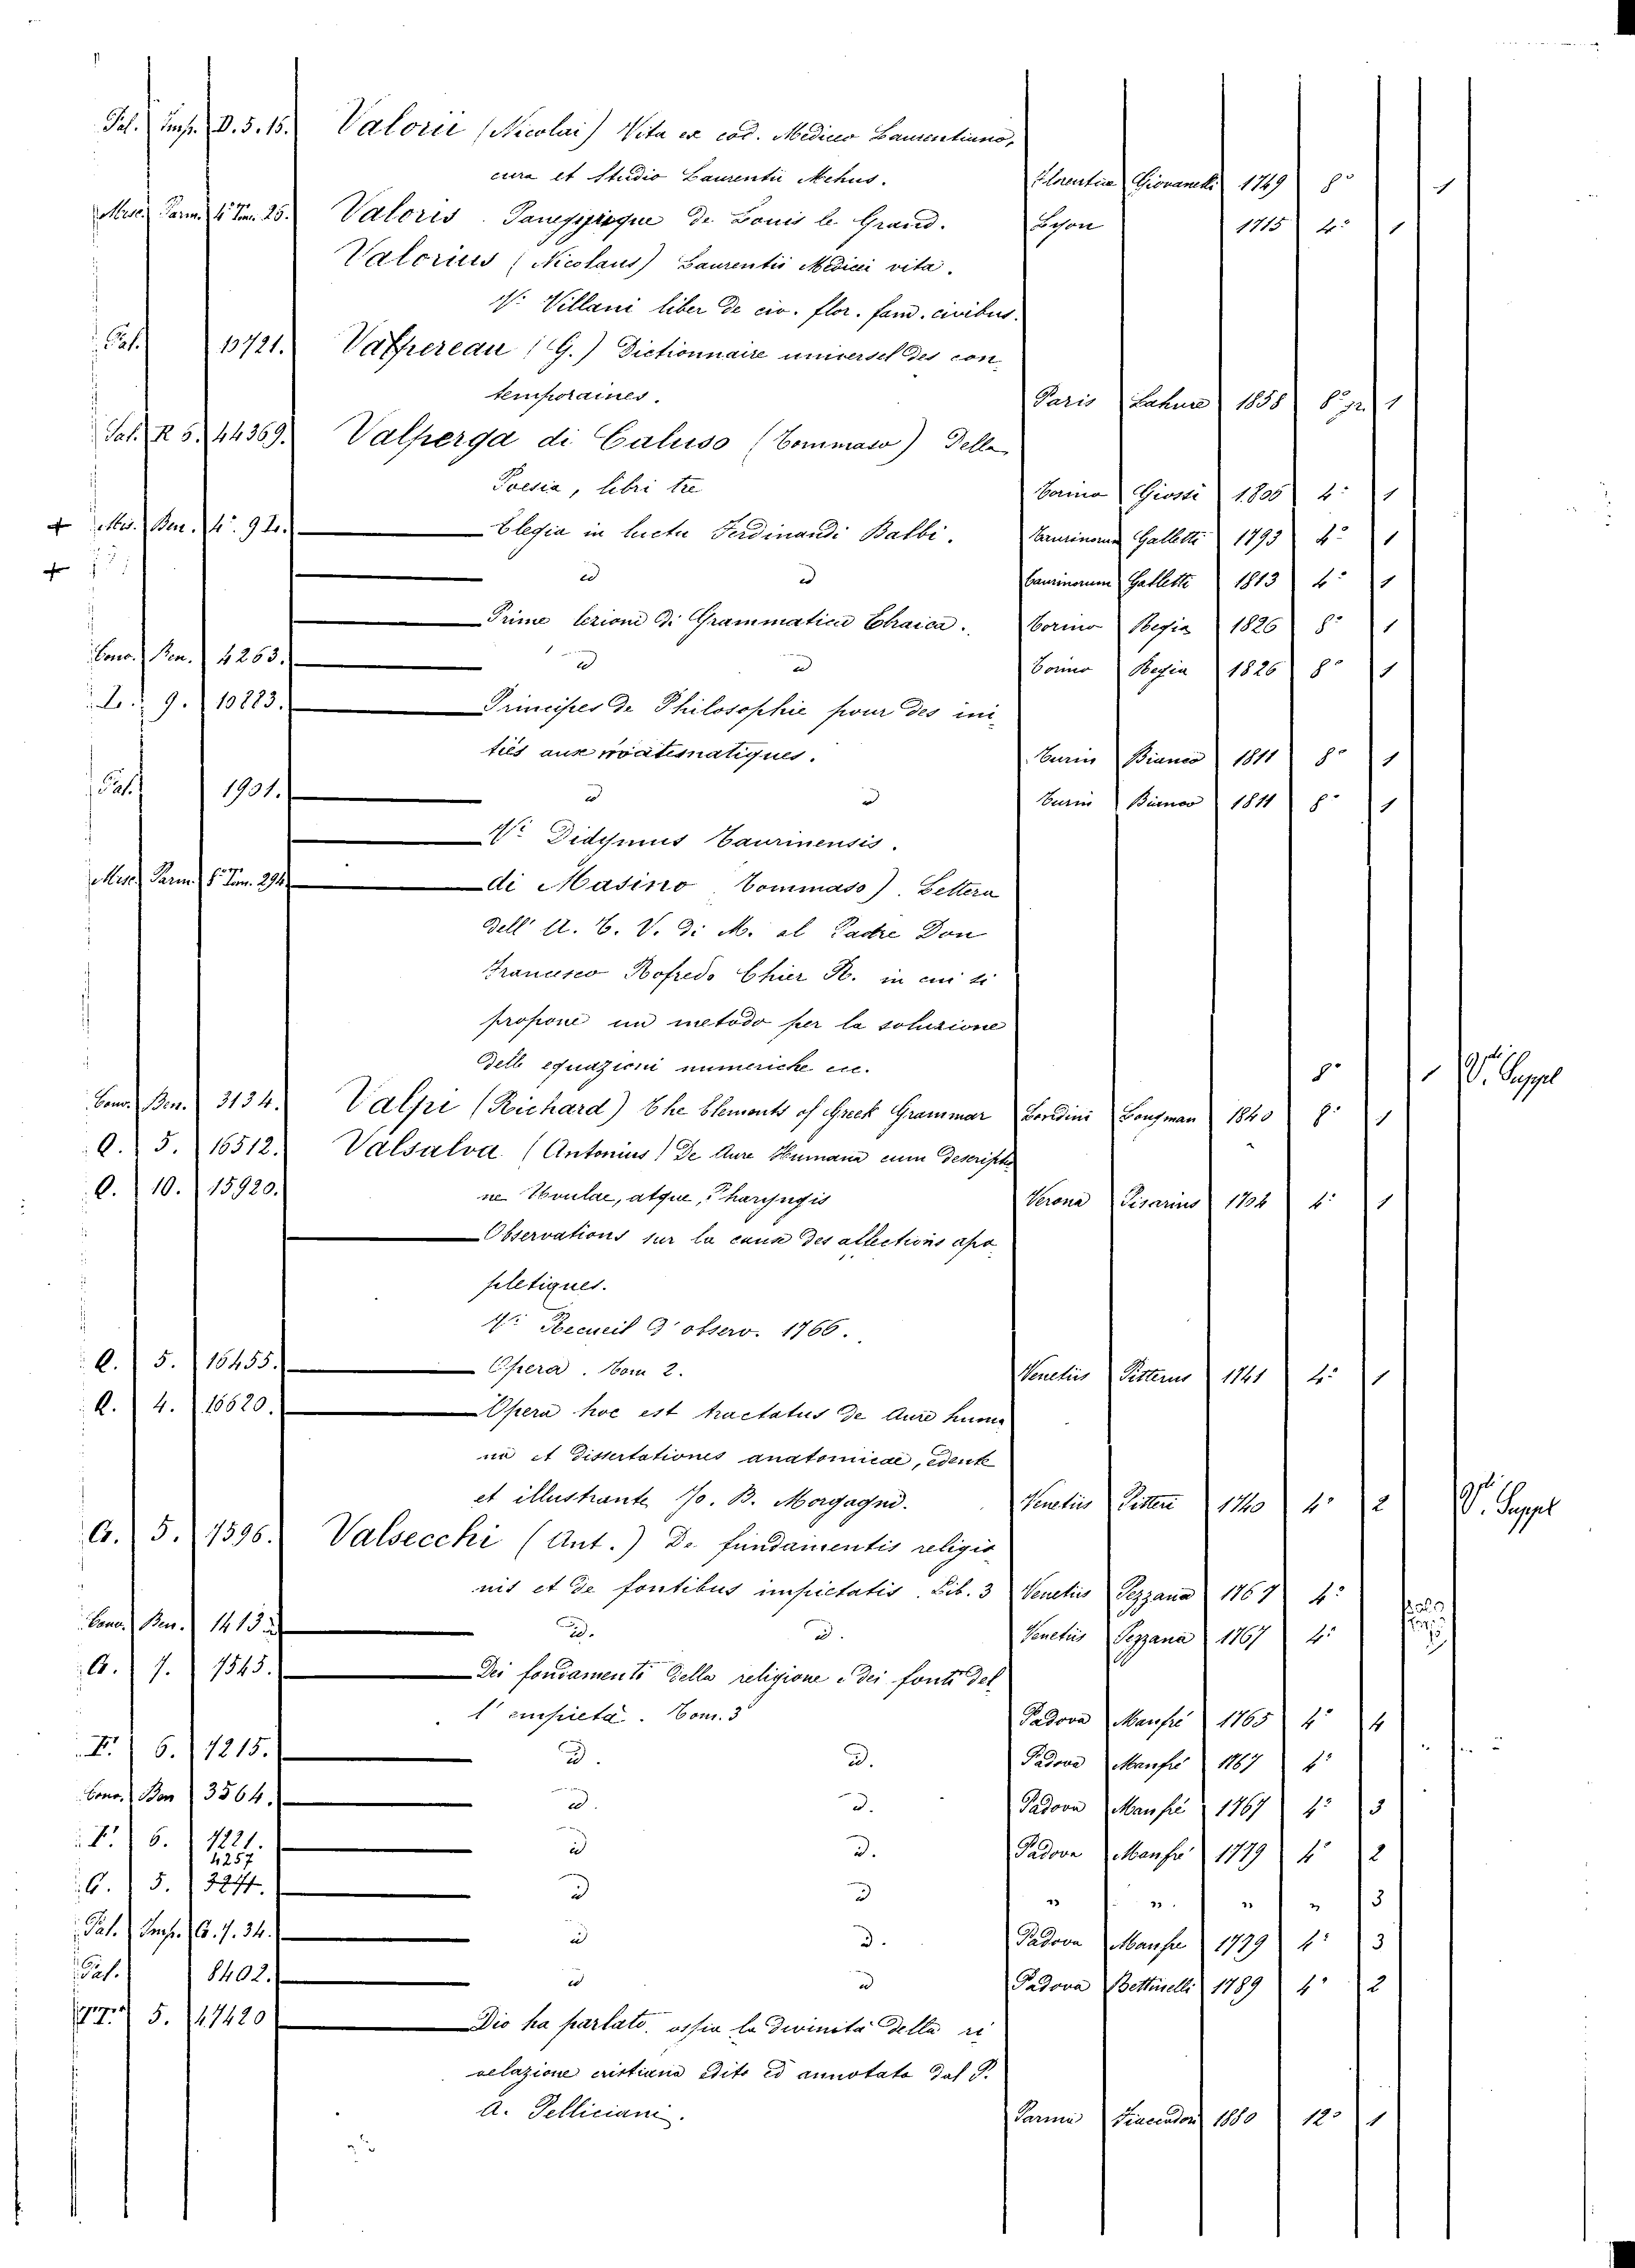 Pal. Imp. D. 5. 15. Valorii (Nicolai) Vita ex cod. Mediceo Laurentiano,
cura et studio Laurentii Mehus. Florentiae Giovanelli 1749 8° 1
Misc. Parm. 4° Tom. 25. Valoris. Panegyrique de Louis le Grand. Lyon 1715 4° 1
Valorius (Nicolaus) Laurentii Medicei vita.
V. Villani liber de civ. flor. fam. civibus.
Pal. 13721. Vapereau (G.) Dictionnaire universel des con
temporaines. Paris Lahure 1858 8° gr. 1
Sal. R 5. 44369. Valperga di Caluso (Tommaso) Della
Poesia, libri tre Torino Giossi 1806 4° 1
+ Mis. Ben. 4°. 92. Elegia in luctu Ferdinandi Balbi. Taurinorum Galletti 1793 4° 1
+ id id Taurinorum Galletti 1813 4° 1
Prime lezioni di Grammatica Ebraica. Torino Regia 1826 8° 1
Cono. Ben. 4263. id id Torino Regia 1826 8° 1
L. 9. 10883. Principes de Philosophie pour des ini
tiés aux matematiques. Turin Bianco 1811 8° 1
Pal. 1901. id id Turin Bianco 1811 8° 1
V. Didymus Taurinensis.
Misc. Parm. 8° Tom. 294 di Masino Tommaso). Lettera
dell' A. T. V. di M. al Padre Don
Francesco Rofredo Chier R. in cui si
propone un metodo per la soluzione
delle equazioni numeriche ec. 8° 1 V. Suppl
Cono. Ben. 3134. Valpi (Richard) The Elements of Greek Grammar Londini Longman 1840 8° 1
Q. 5. 16512. Valsalva (Antonius) De Aure Humana cum descriptio
Q. 10. 15920. ne Uvulae, atque, Pharyngis Verona Pisarius 1704 4° 1
Observations sur la cause des allections apo
pletiques.
V. Recueil d'observ. 1766.
Q. 5. 16455. Opera. Tom 2. Venetiis Pitterus 1741 4° 1
Q. 4. 16620. Opera hoc est tractatus de Aure huma
na et dissertationes anatomicae, edente
et illustrante Jo. B. Morgagni. Venetiis Pitteri 1740 4° 2 V. Suppl
G. 5. 1596. Valsecchi (Ant.) De fundamentis religio
nis et de fontibus impietatis. Lib. 3 Venetiis Pezzana 1767 4°
Cono. Ben. 1413 id. id. Venetiis Pezzana 1767 4°
G. 7. 1545. Dei fondamenti della religione e dei fonti del
l'empietà. Tom. 3 Padova Manfrè 1765 4° 4
F. 6. 1215. id. id. Padova Manfrè 1767 4°
Cono. Ben 3564. id. id. Padova Manfrè 1767 4° 3
F. 6. 1221. id id. Padova Manfrè 1779 4° 2
4257
G. 5. 3244. id id " " " " 3
Pal. Imp. G. 7. 34. id id. Padova Manfrè 1779 4° 3
Pal. 8402. id id Padova Bettinelli 1789 4° 2
5. 47420 Dio ha parlato, ossia la divinità della ri
velazione cristiana edito ed annotato dal P.
A. Pelliciani. Parma Fiaccadori 1880 12° 1